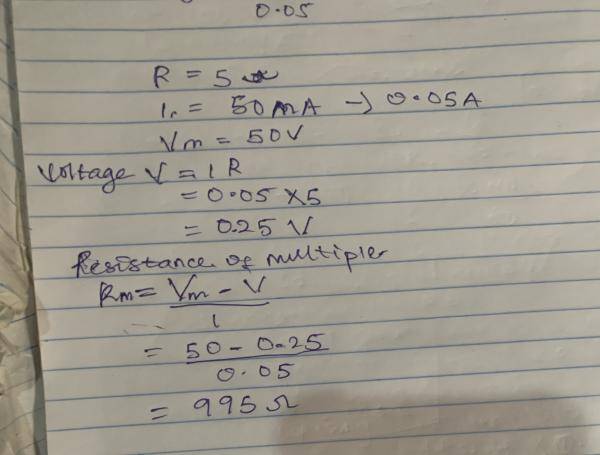 0.05
R = 5
I = 50mA → 0.05A
Vm = 50V
Voltage V = I R
= 0.05 × 5
= 0.25 V
Resistance of multipler
Rm = Vm - V
I
= 50 - 0.25
0.05
= 995 Ω